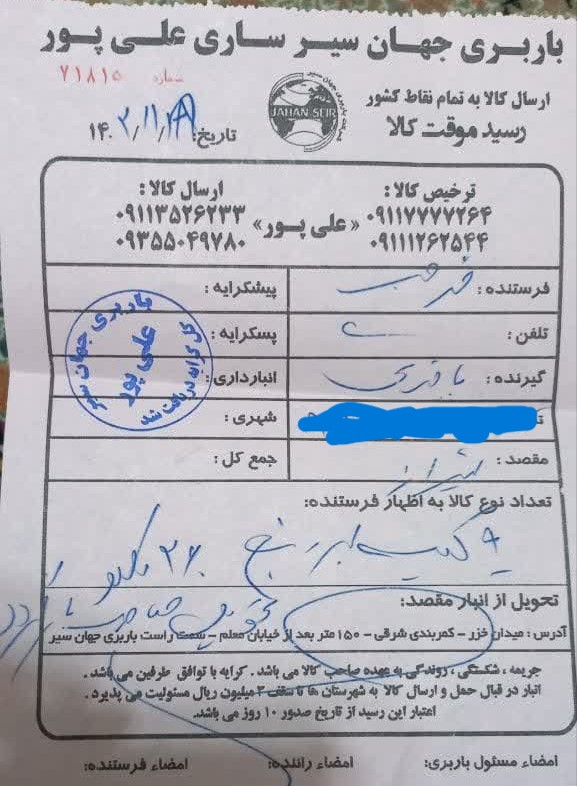 باربری جهان سیر ساری علی پور
شماره ۷۱۸۱۵
ارسال کالا به تمام نقاط کشور
JAHAN SEIR
رسید موقت کالا
تاریخ: ۱۴۰۲/۱۱/۲۸
ترخیص کالا: ارسال کالا:
۰۹۱۱۷۷۷۷۲۶۴ «علی پور» ۰۹۱۱۳۵۲۶۲۳۳
۰۹۱۱۱۲۶۲۵۴۴ ۰۹۳۵۵۰۴۹۷۸۰
فرستنده: پیشکرایه:
تلفن: پسکرایه:
گیرنده: انبارداری:
شهری:
مقصد: شیراز جمع کل:
باربری جهان سیر
علی پور
کل کرایه دریافت شد
تعداد نوع کالا به اظهار فرستنده:
۹ کیسه برنج ۳۶۰ کیلو
تحویل از انبار مقصد:
آدرس: میدان خزر - کمربندی شرقی - ۱۵۰ متر بعد از خیابان معلم - سمت راست باربری جهان سیر
جریمه، شکستگی، روندگی به عهده صاحب کالا می باشد. کرایه با توافق طرفین می باشد.
انبار در قبال حمل و ارسال کالا به شهرستان ها تا سقف ۲ میلیون ریال مسئولیت می پذیرد.
اعتبار این رسید از تاریخ صدور ۱۰ روز می باشد.
امضاء مسئول باربری: امضاء راننده: امضاء فرستنده: